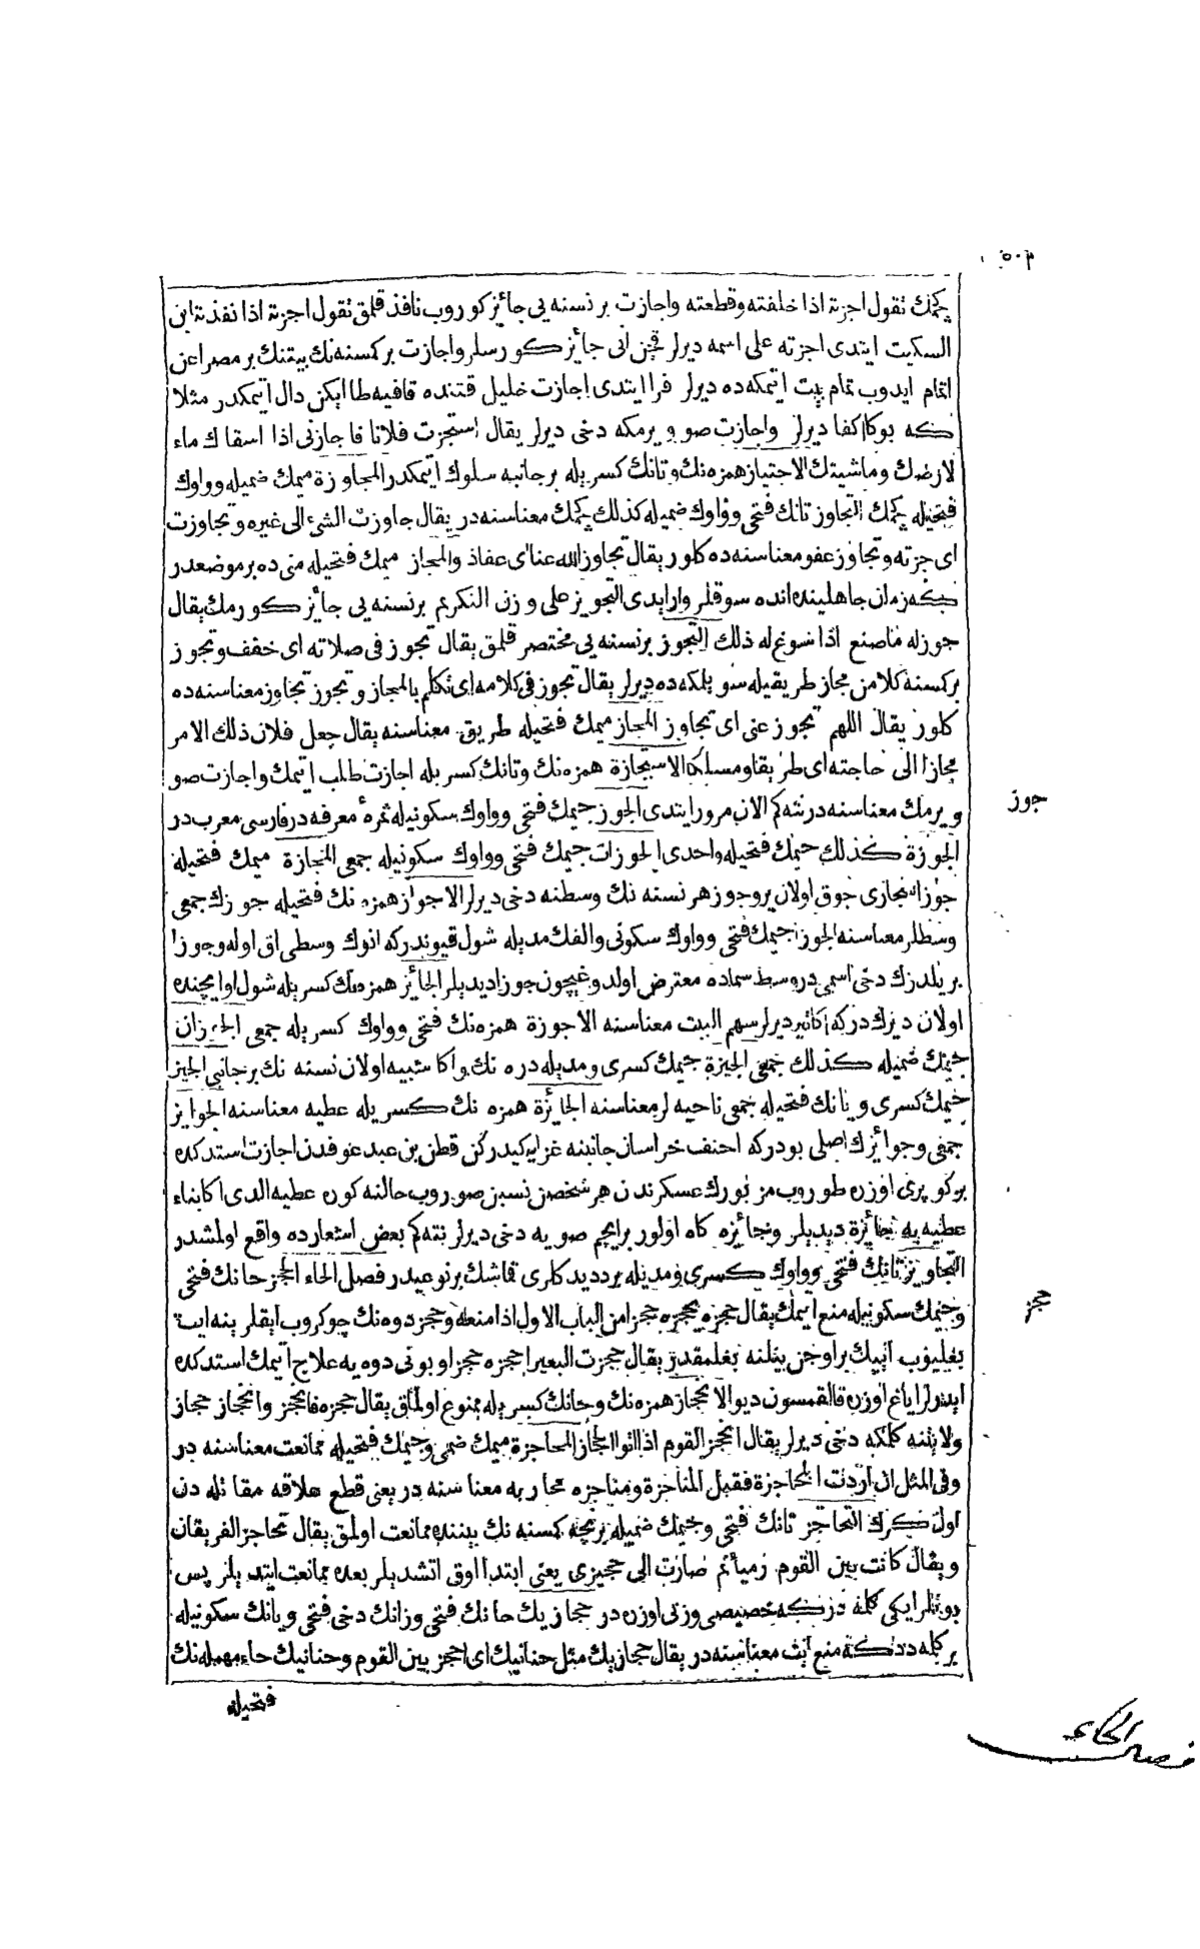 ٥٠٣
چكمك تقول اجزته اذا خلفته وقطعته واجازت بر نسنه يی جائز كوروب نافذ قلمق تقول اجزته اذا نفذته ابن
السكيت ايتدی اجزته علی اسمه ديرلر قچن انی جائز كورسلر واجازت بر كسنه نك بيتنك بر مصراعن
اتمام ايدوب تمام بيت ايتمكه ده ديرلر فرا ايتدی اجازت خليل قتنده قافيه طا ايكن دال ايتمكدر مثلا
كه بوكا اكفا ديرلر واجازت صو ويرمكه دخی ديرلر يقال استجزت فلانا فاجازنی اذا اسقاك ماء
لارضك وماشيتك الاجتياز همزه نك وتانك كسريله بر جانبه سلوك ايتمكدر المجاوزة ميمك ضميله وواوك
فتحيله چكمك التجاوز تانك فتحی وواوك ضميله كذلك چكمك معناسنه در يقال جاوزت الشئ الی غيره وتجاوزت
ای جزته وتجاوز عفو معناسنه ده كلور يقال تجاوز الله عنا ای عفا والمجاز ميمك فتحيله منی ده بر موضعدر
كه زمان جاهليتده انده سوقلر وار ايدی التجويز علی وزن التكريم بر نسنه يی جائز كورمك يقال
جوز له ما صنع اذا سوغ له ذلك التجوز بر نسنه يی مختصر قلمق يقال تجوز فی صلاته ای خفف وتجوز
بر كسنه كلامن مجاز طريقيله سويلمكه ده ديرلر يقال تجوز فی كلامه ای تكلم بالمجاز وتجوز تجاوز معناسنه ده
كلور يقال اللهم تجوز عنی ای تجاوز المجاز ميمك فتحيله طريق معناسنه يقال جعل فلان ذلك الامر
مجازا الی حاجته ای طريقا ومسلكا الاستجازة همزه نك وتانك كسريله اجازت طلب ايتمك واجازت صو
ويرمك معناسنه در نته كم الان مرور ايتدی الجوز جيمك فتحی وواوك سكونيله ثمره معرفه در فارسی معرب در
جوز
الجوزة كذلك جيمك فتحيله واحدی الجوزات جيمك فتحی وواوك سكونيله جمعی المجازة ميمك فتحيله
جوز اغجاری چوق اولان ير وجوز هر نسنه نك وسطنه دخی ديرلر الاجواز همزه نك فتحيله جوزك جمعی
وسطلر معناسنه الجوزا جيمك فتحی وواوك سكونی والفك مديله شول قيوندركه انوك وسطی اق اوله وجوزا
بر يلدزك دخی اسمی در وسط سماده معترض اولدوغيچون جوزا ديديلر الجائز همزه نك كسريله شول او ايچنده
اولان ديركدركه اكا تير ديرلر سهم البيت معناسنه الاجوزة همزه نك فتحی وواوك كسريله جمعی الجوزان
جيمك ضميله كذلك جمعی الجيزة جيمك كسری ومديله دره نك واكا شبيه اولان نسنه نك بر جانبی الجيز
جيمك كسری ويانك فتحيله جمعی ناحيه لر معناسنه الجائزة همزه نك كسريله عطيه معناسنه الجوايز
جمعی وجوايزك اصلی بودركه احنف خراسان جانبنه غزايه كيدركن قطن بن عبد عوفدن اجازت استدكده
بر كوپری اوزره طوروب مزبورك عسكرندن هر شخصن نسبن صوروب حالنه كوره عطيه الدی اكا بناء
عطيه يه جائزة ديديلر وجائزه كاه اولور بر ايچم صويه دخی ديرلر نته كم بعض اشعارده واقع اولمشدر
التجاويز تانك فتحی وواوك كسری ومديله برد ديدكلری قماشك بر نوعيدر فصل الحاء الحجز حانك فتحی
وجيمك سكونيله منع ايتمك يقال حجزه يحجزه حجزا من الباب الاول اذا منعه وحجز دوه نك چوكروب ايقلرينه ايپ
حجز
بغليوب انك بر اوجن بيلنه بغلمقدر يقال حجزت البعير احجزه حجزا وبونی دوه يه علاج ايتمك استدكده
ايدرلر اياغ اوزره قالقمسون ديو الانحجاز همزه نك وحانك كسريله ممنوع اولمق يقال حجزه فانحجز وانحجاز حجاز
ولايتنه كلمكه دخی ديرلر يقال انحجز القوم اذا اتوا الحجاز المحاجزة ميمك ضمی وجيمك فتحيله ممانعت معناسنه در
وفی المثل ان اردت المحاجزة فقبل المناجزة ومناجزه محاربه معناسنه در يعنی قطع علاقه مقاتله دن
اول كرك التحاجز تانك فتحی وجيمك ضميله بر نچه كسنه نك بيننده ممانعت اولمق يقال تحاجز الفريقان
ويقال كانت بين القوم رميا ثم صارت الی حجيزی يعنی ابتدا اوق اتشديلر بعده ممانعت ايتديلر پس
بونلر ايكی كلمه در كه خصيصی وزنی اوزره در حجازيك حانك فتحی وزانك دخی فتحی ويانك سكونيله
بر كلمه در كه منع ايت معناسنه در يقال حجازيك مثل حنانيك ای احجز بين القوم وحنانيك حاء مهمله نك
فتحيله
فصل الحاء